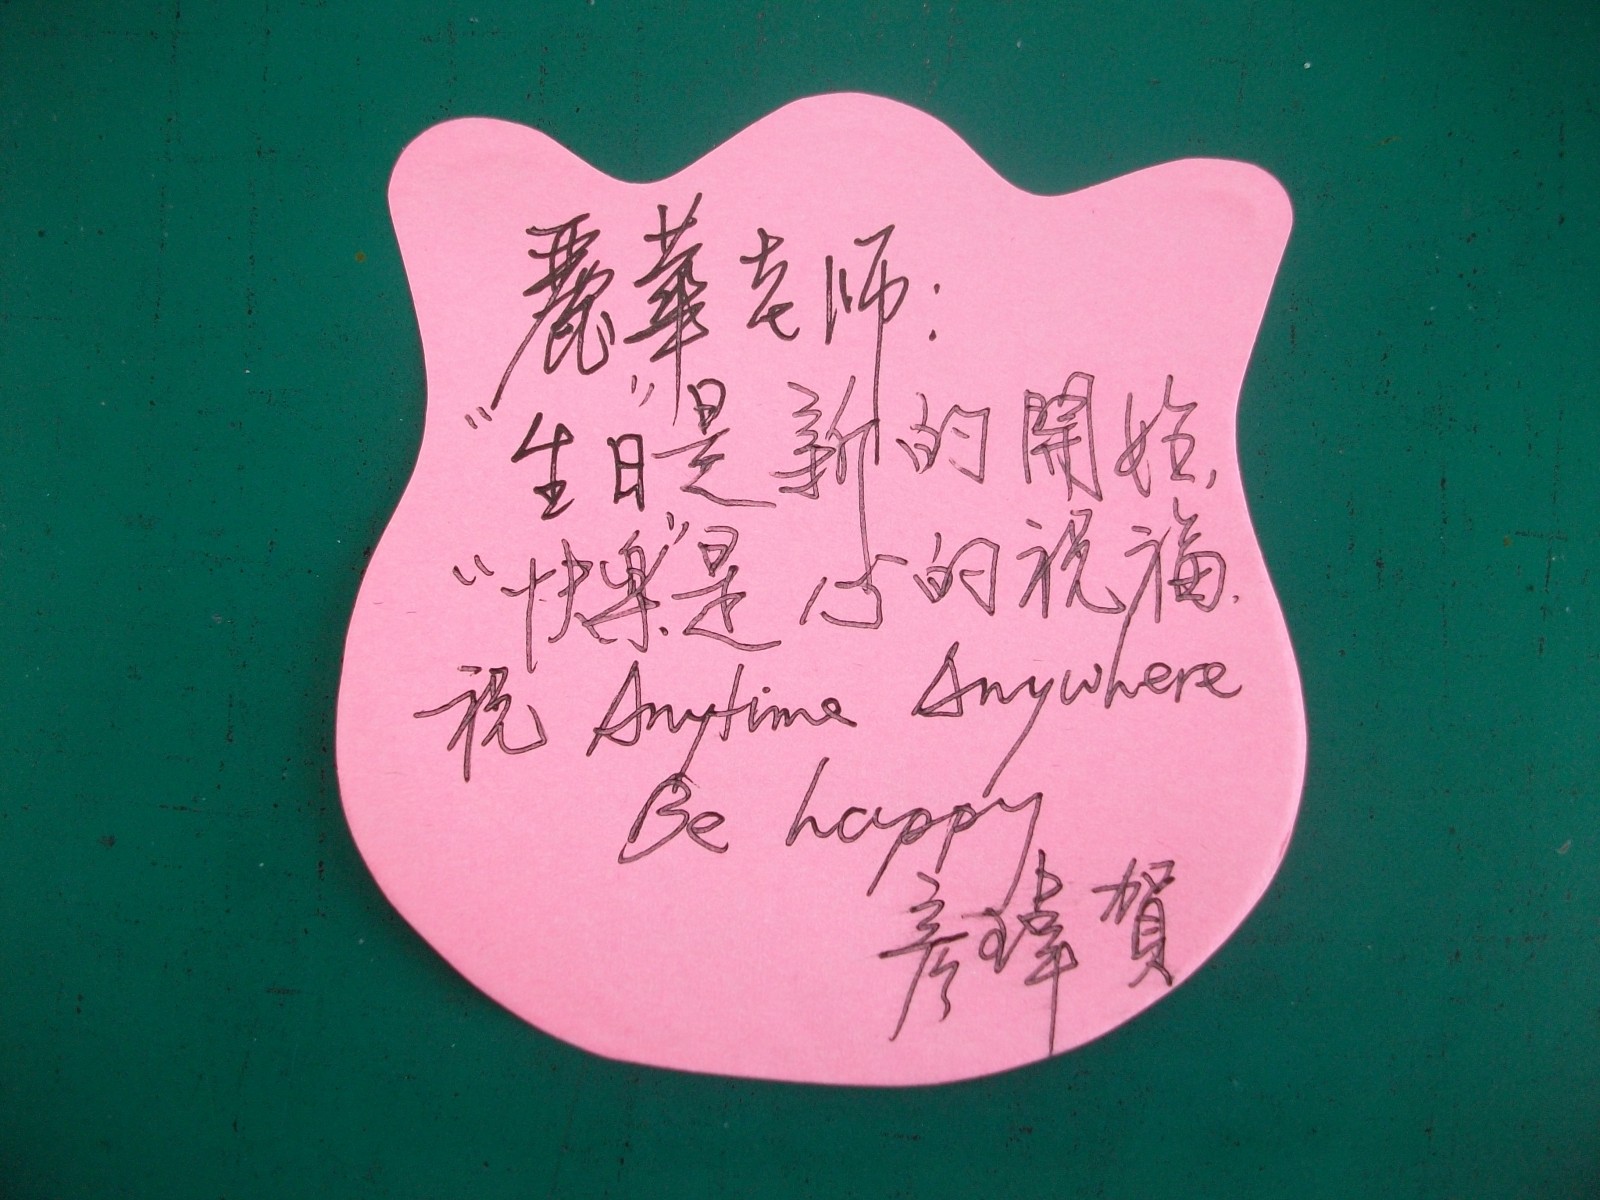 麗華老师:
"生日"是新的開始,
"快樂"是心的祝福.
祝 Anytime Anywhere
Be happy
彥瑋賀